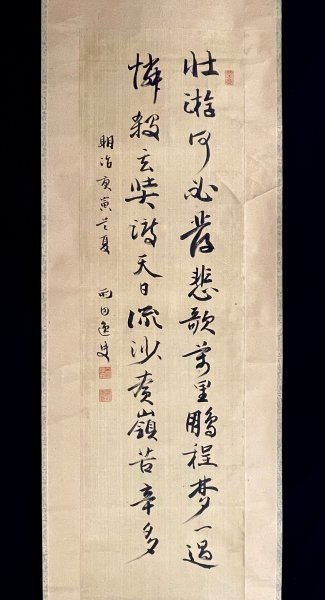 壮游何必發悲歌万里鵬程夢一過
憐殺玄奘渡天日流沙葱嶺苦辛多
明治庚寅之夏 雨田逸史